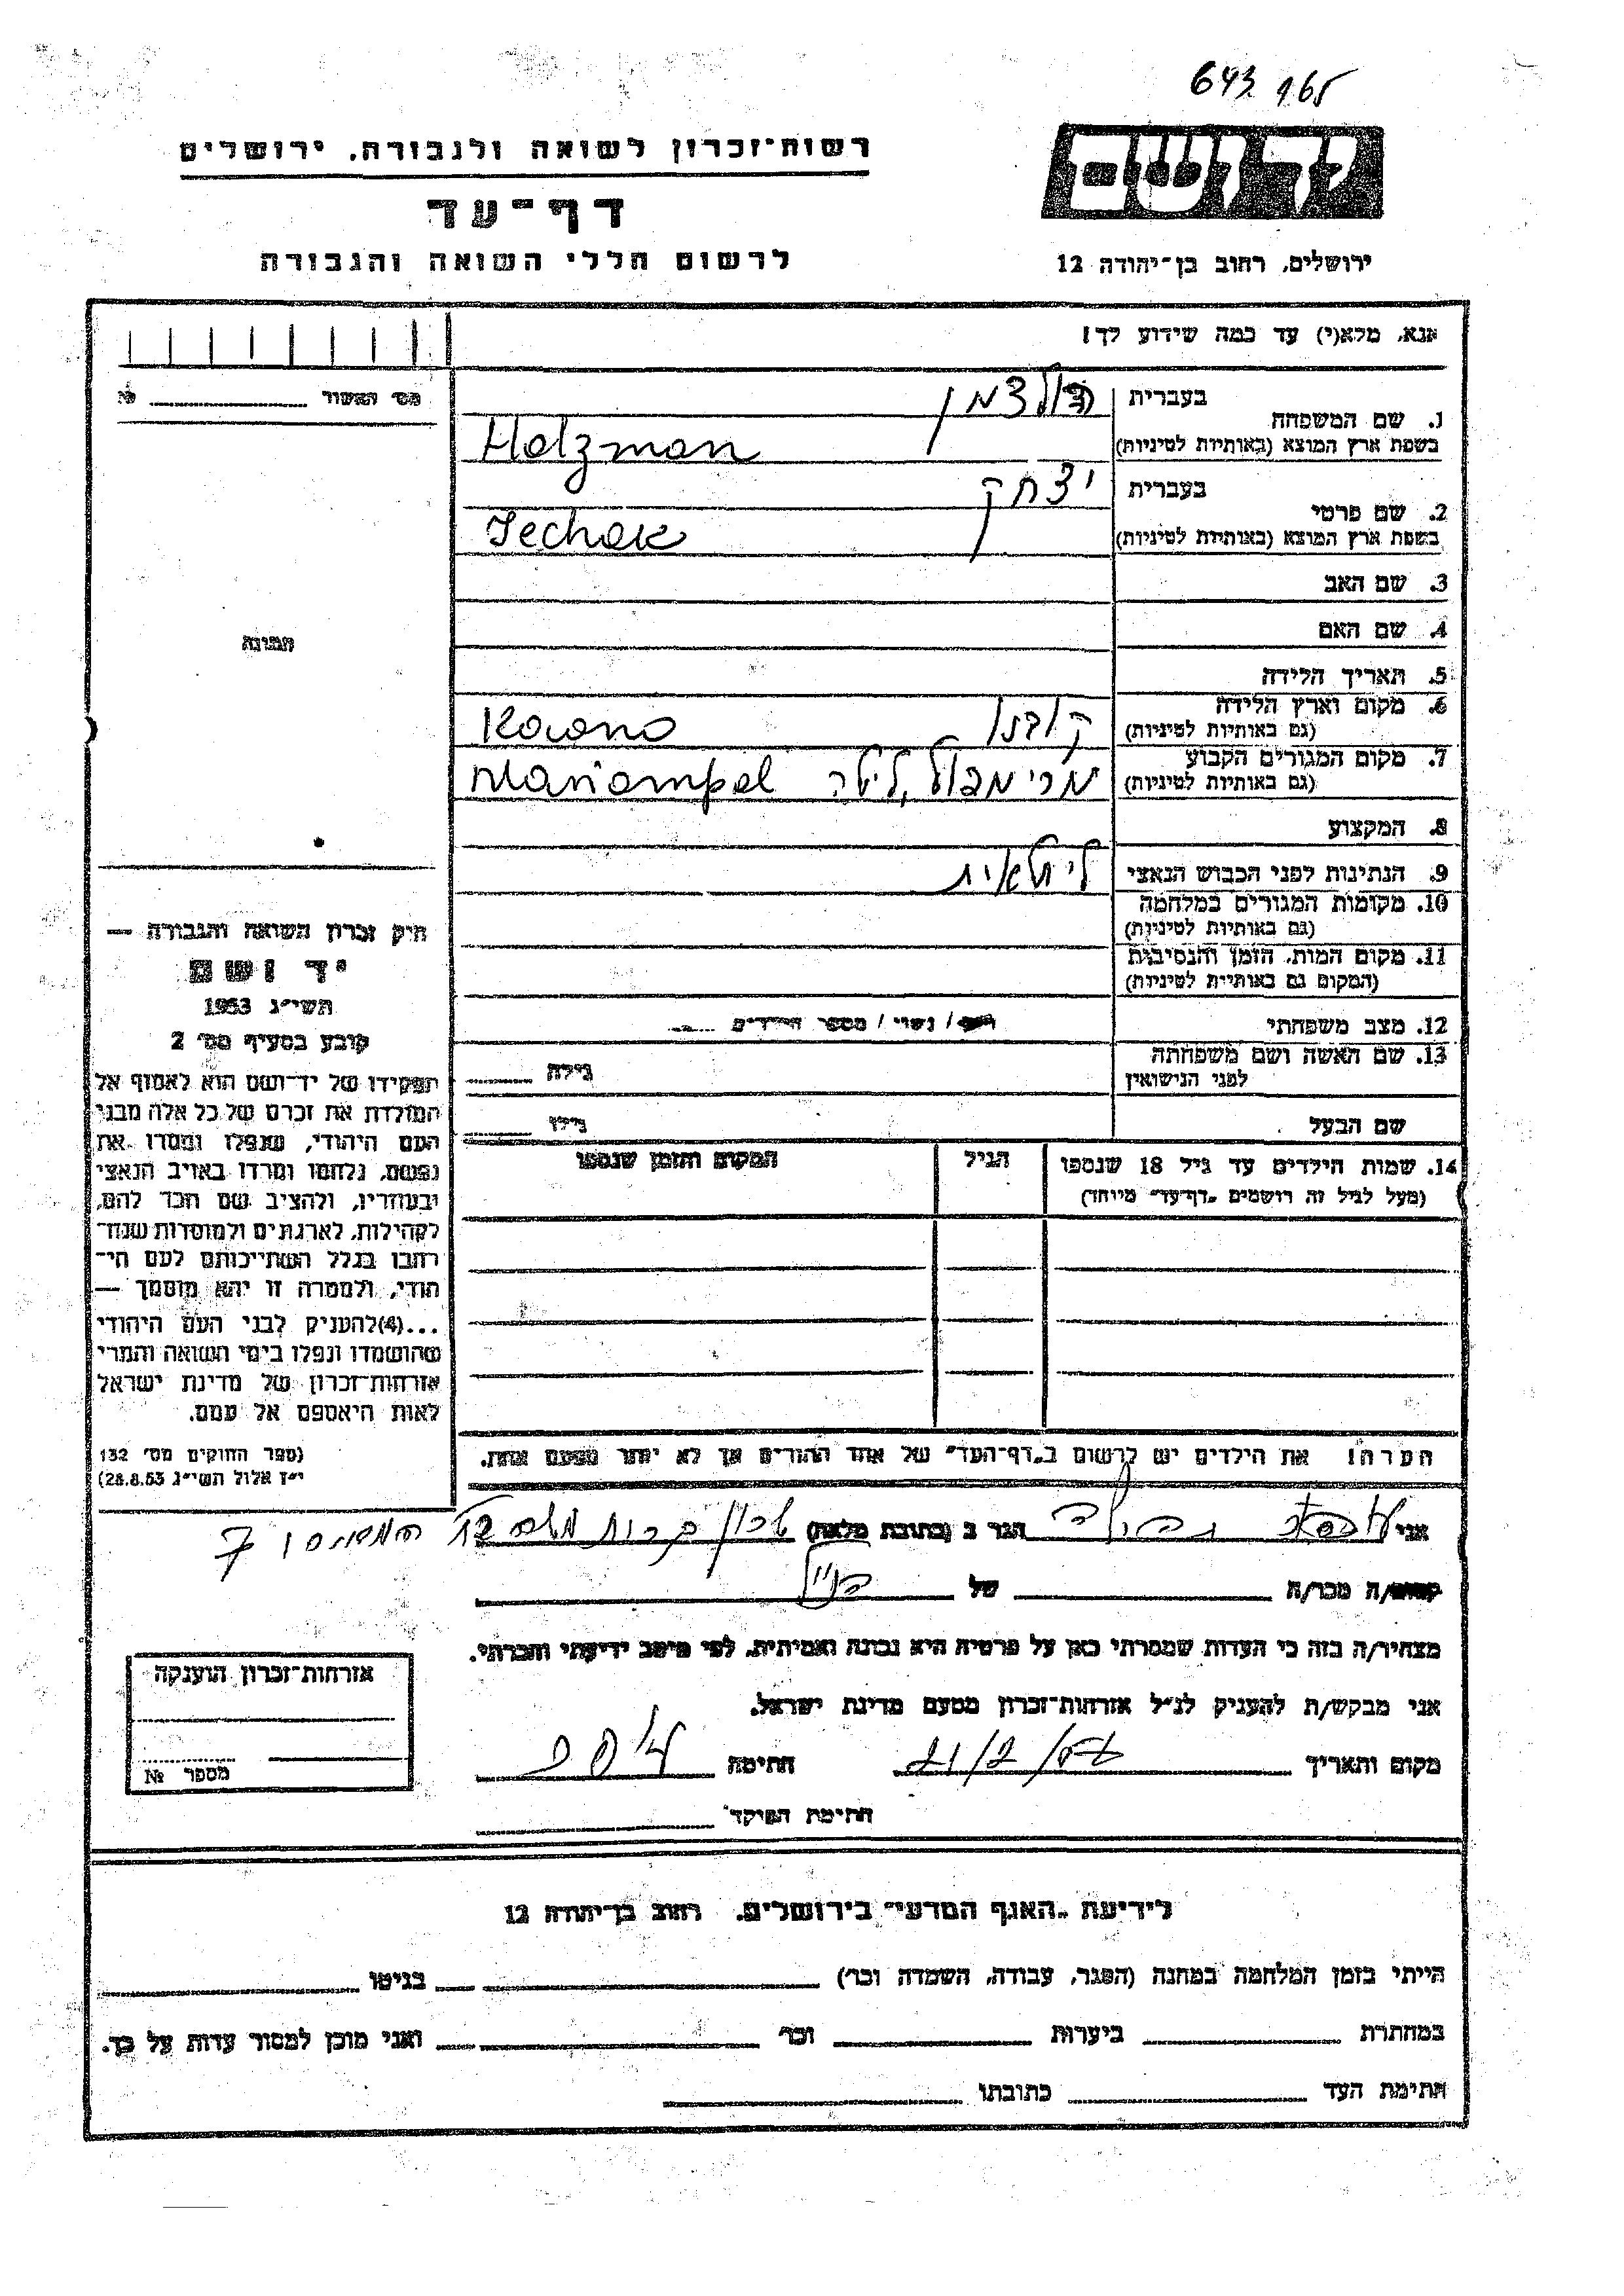 643 165
יד ושם
רשות־זכרון לשואה ולגבורה, ירושלים
דף־עד
ירושלים, רחוב בן־יהודה 12
לרשום חללי השואה והגבורה
אנא, מלא(י) עד כמה שידוע לך!
מס' האשור № ____
1. שם המשפחה בעברית הולצמן
בשפת ארץ המוצא (באותיות לטיניות) Holzman
2. שם פרטי בעברית יצחק
בשפת ארץ המוצא (באותיות לטיניות) Jechak
3. שם האב
4. שם האם
תמונה
5. תאריך הלידה
6. מקום וארץ הלידה
(גם באותיות לטיניות) קובנו Kowno
7. מקום המגורים הקבוע
(גם באותיות לטיניות) מרימפול, ליטה Mariampol
8. המקצוע
9. הנתינות לפני הכבוש הנאצי ליטאית
10. מקומות המגורים במלחמה
(גם באותיות לטיניות)
11. מקום המות, הזמן והנסיבות
(המקום גם באותיות לטיניות)
12. מצב משפחתי רווק / נשוי / מספר הילדים
13. שם האשה ושם משפחתה
לפני הנישואין גילה
שם הבעל גילו
14. שמות הילדים עד גיל 18 שנספו הגיל המקום והזמן שנספו
(מעל לגיל זה רושמים "דף־עד" מיוחד)
חוק זכרון השואה והגבורה —
יד ושם
תשי"ג 1953
קובע בסעיף מס' 2
תפקידו של יד־ושם הוא לאסוף אל
המולדת את זכרם של כל אלה מבני
העם היהודי, שנפלו ומסרו את
נפשם, נלחמו ומרדו באויב הנאצי
ובעוזריו, ולהציב שם וזכר להם,
לקהילות, לארגונים ולמוסדות שנח־
רבו בגלל השתייכותם לעם הי־
הודי, ולמטרה זו יהא מוסמך —
...(4) להעניק לבני העם היהודי
שהושמדו ונפלו בימי השואה והמרי
אזרחות־זכרון של מדינת ישראל
לאות היאספם אל עמם.
(ספר החוקים מס' 132
י"ז אלול תשי"ג 28.8.53)
הערה! את הילדים יש לרשום ב"דף־העד" של אחד ההורים אך לא יותר מפעם אחת.
אני הגר ב (כתובת מלאה) שכון 7
קרוב/ה מכר/ה של הנ"ל
מצהיר/ה בזה כי העדות שמסרתי כאן על פרטיה היא נכונה ואמיתית, לפי מיטב ידיעתי והכרתי.
אני מבקש/ת להעניק לנ"ל אזרחות־זכרון מטעם מדינת ישראל.
מקום ותאריך 21/2/ חתימה
חתימת הפוקד
אזרחות־זכרון הוענקה
מספר №
לידיעת "האגף המדעי" בירושלים, רחוב בן־יהודה 12
הייתי בזמן המלחמה במחנה (הסגר, עבודה, השמדה וכו') בגיטו
במחתרת ביערות וכו' ואני מוכן למסור עדות על כך.
חתימת העד כתובתו